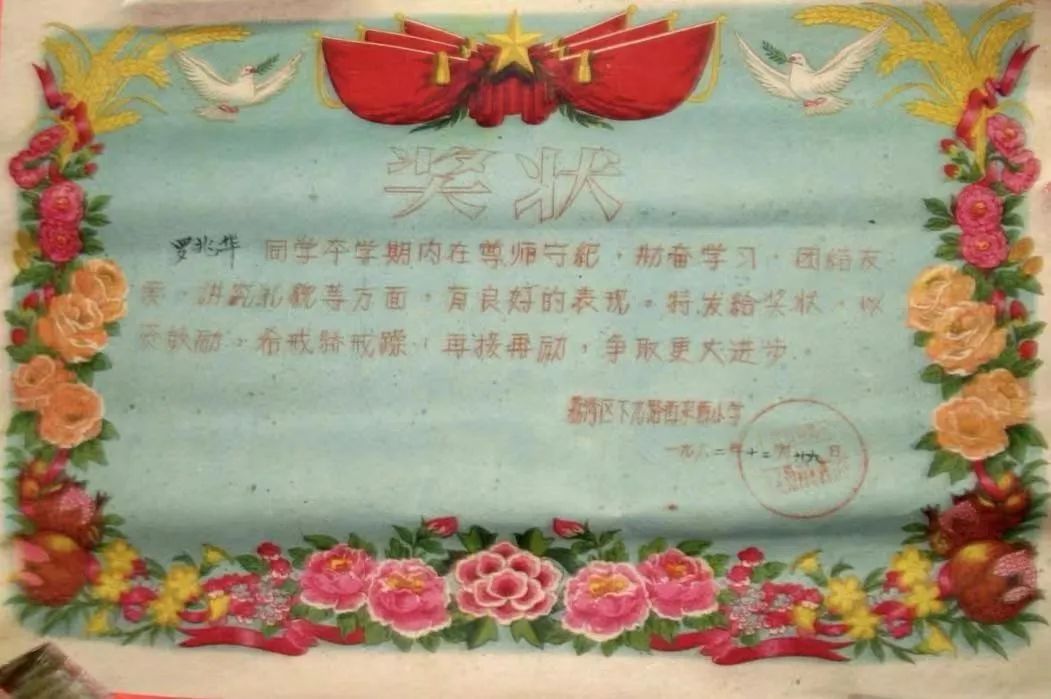 奖状
罗兆华 同学本学期内在尊师守纪，勤奋学习，团结友
爱，讲究礼貌等方面，有良好的表现。特发给奖状，以
资鼓励。希戒骄戒躁，再接再励，争取更大进步。
荔湾区下九路西来新小学
一九八二年十二月廿九日